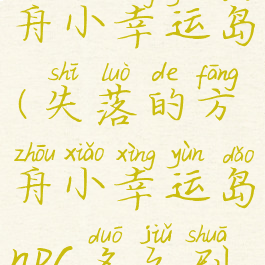 舟小幸运岛
shī luò de fāng
(失落的方
zhōu xiǎo xìng yùn dǎo
舟小幸运岛
duō jiǔ shuā